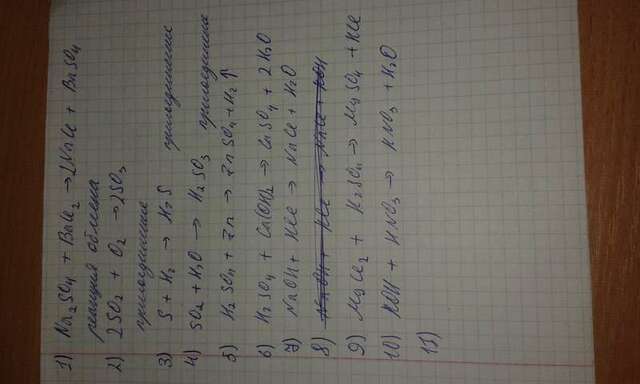 1) Na2SO4 + BaCl2 → 2NaCl + BaSO4
реакция обмена
2) 2SO2 + O2 → 2SO3
присоединение
3) S + H2 → H2S присоединение
4) SO2 + H2O → H2SO3 присоединение
5) H2SO4 + Zn → ZnSO4 + H2↑
6) H2SO4 + Ca(OH)2 → CaSO4 + 2H2O
7) NaOH + HCl → NaCl + H2O
8) NaOH + HCl → NaCl + KOH
9) MgCl2 + H2SO4 → MgSO4 + HCl
10) KOH + HNO3 → KNO3 + H2O
11)